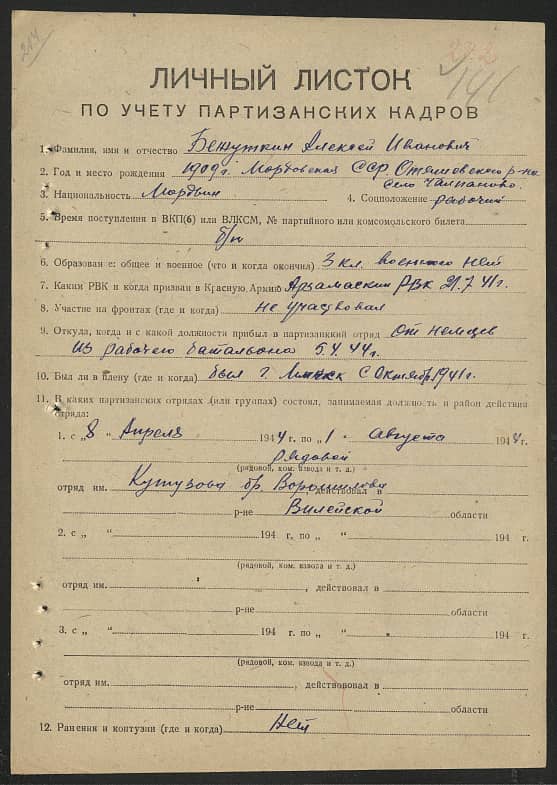 214
232
141
ЛИЧНЫЙ ЛИСТОК
ПО УЧЕТУ ПАРТИЗАНСКИХ КАДРОВ
1. Фамилия, имя и отчество Бежуткин Алексей Иванович
2. Год и место рождения 1909г. Мордовская ССР Отяшовского р-на
село Чалпаново.
3. Национальность Мордвин 4. Соцположение рабочий
5. Время поступления в ВКП(б) или ВЛКСМ, № партийного или комсомольского билета
б/п
6. Образование: общее и военное (что и когда окончил) 3 кл. военного нет
7. Каким РВК и когда призван в Красную Армию Арзамаским РВК 21.7.41г.
8. Участие на фронтах (где и когда) не участвовал
9. Откуда, когда и с какой должности прибыл в партизанский отряд от немцев
из рабочего батальона 5.4.44г.
10. Был ли в плену (где и когда) был г. Минск с Октябр. 1941г.
11. В каких партизанских отрядах (или группах) состоял, занимаемая должность и район действия
отряда:
1. с „8 “ Апреля 1944 г. по „1 “ Августа 1944 г.
рядовой
(рядовой, ком. взвода и т. д.)
отряд им. Кутузова бр. Ворошилова действовал в
р-не Вилейской области
2. с „ “ 194 г. по „ “ 194 г.
(рядовой, ком. взвода и т. д.)
отряд им. , действовал в
р-не области
3. с „ “ 194 г. по „ “ 194 г.
(рядовой, ком. взвода и т. д.)
отряд им. , действовал в
р-не области
12. Ранения и контузии (где и когда) Нет